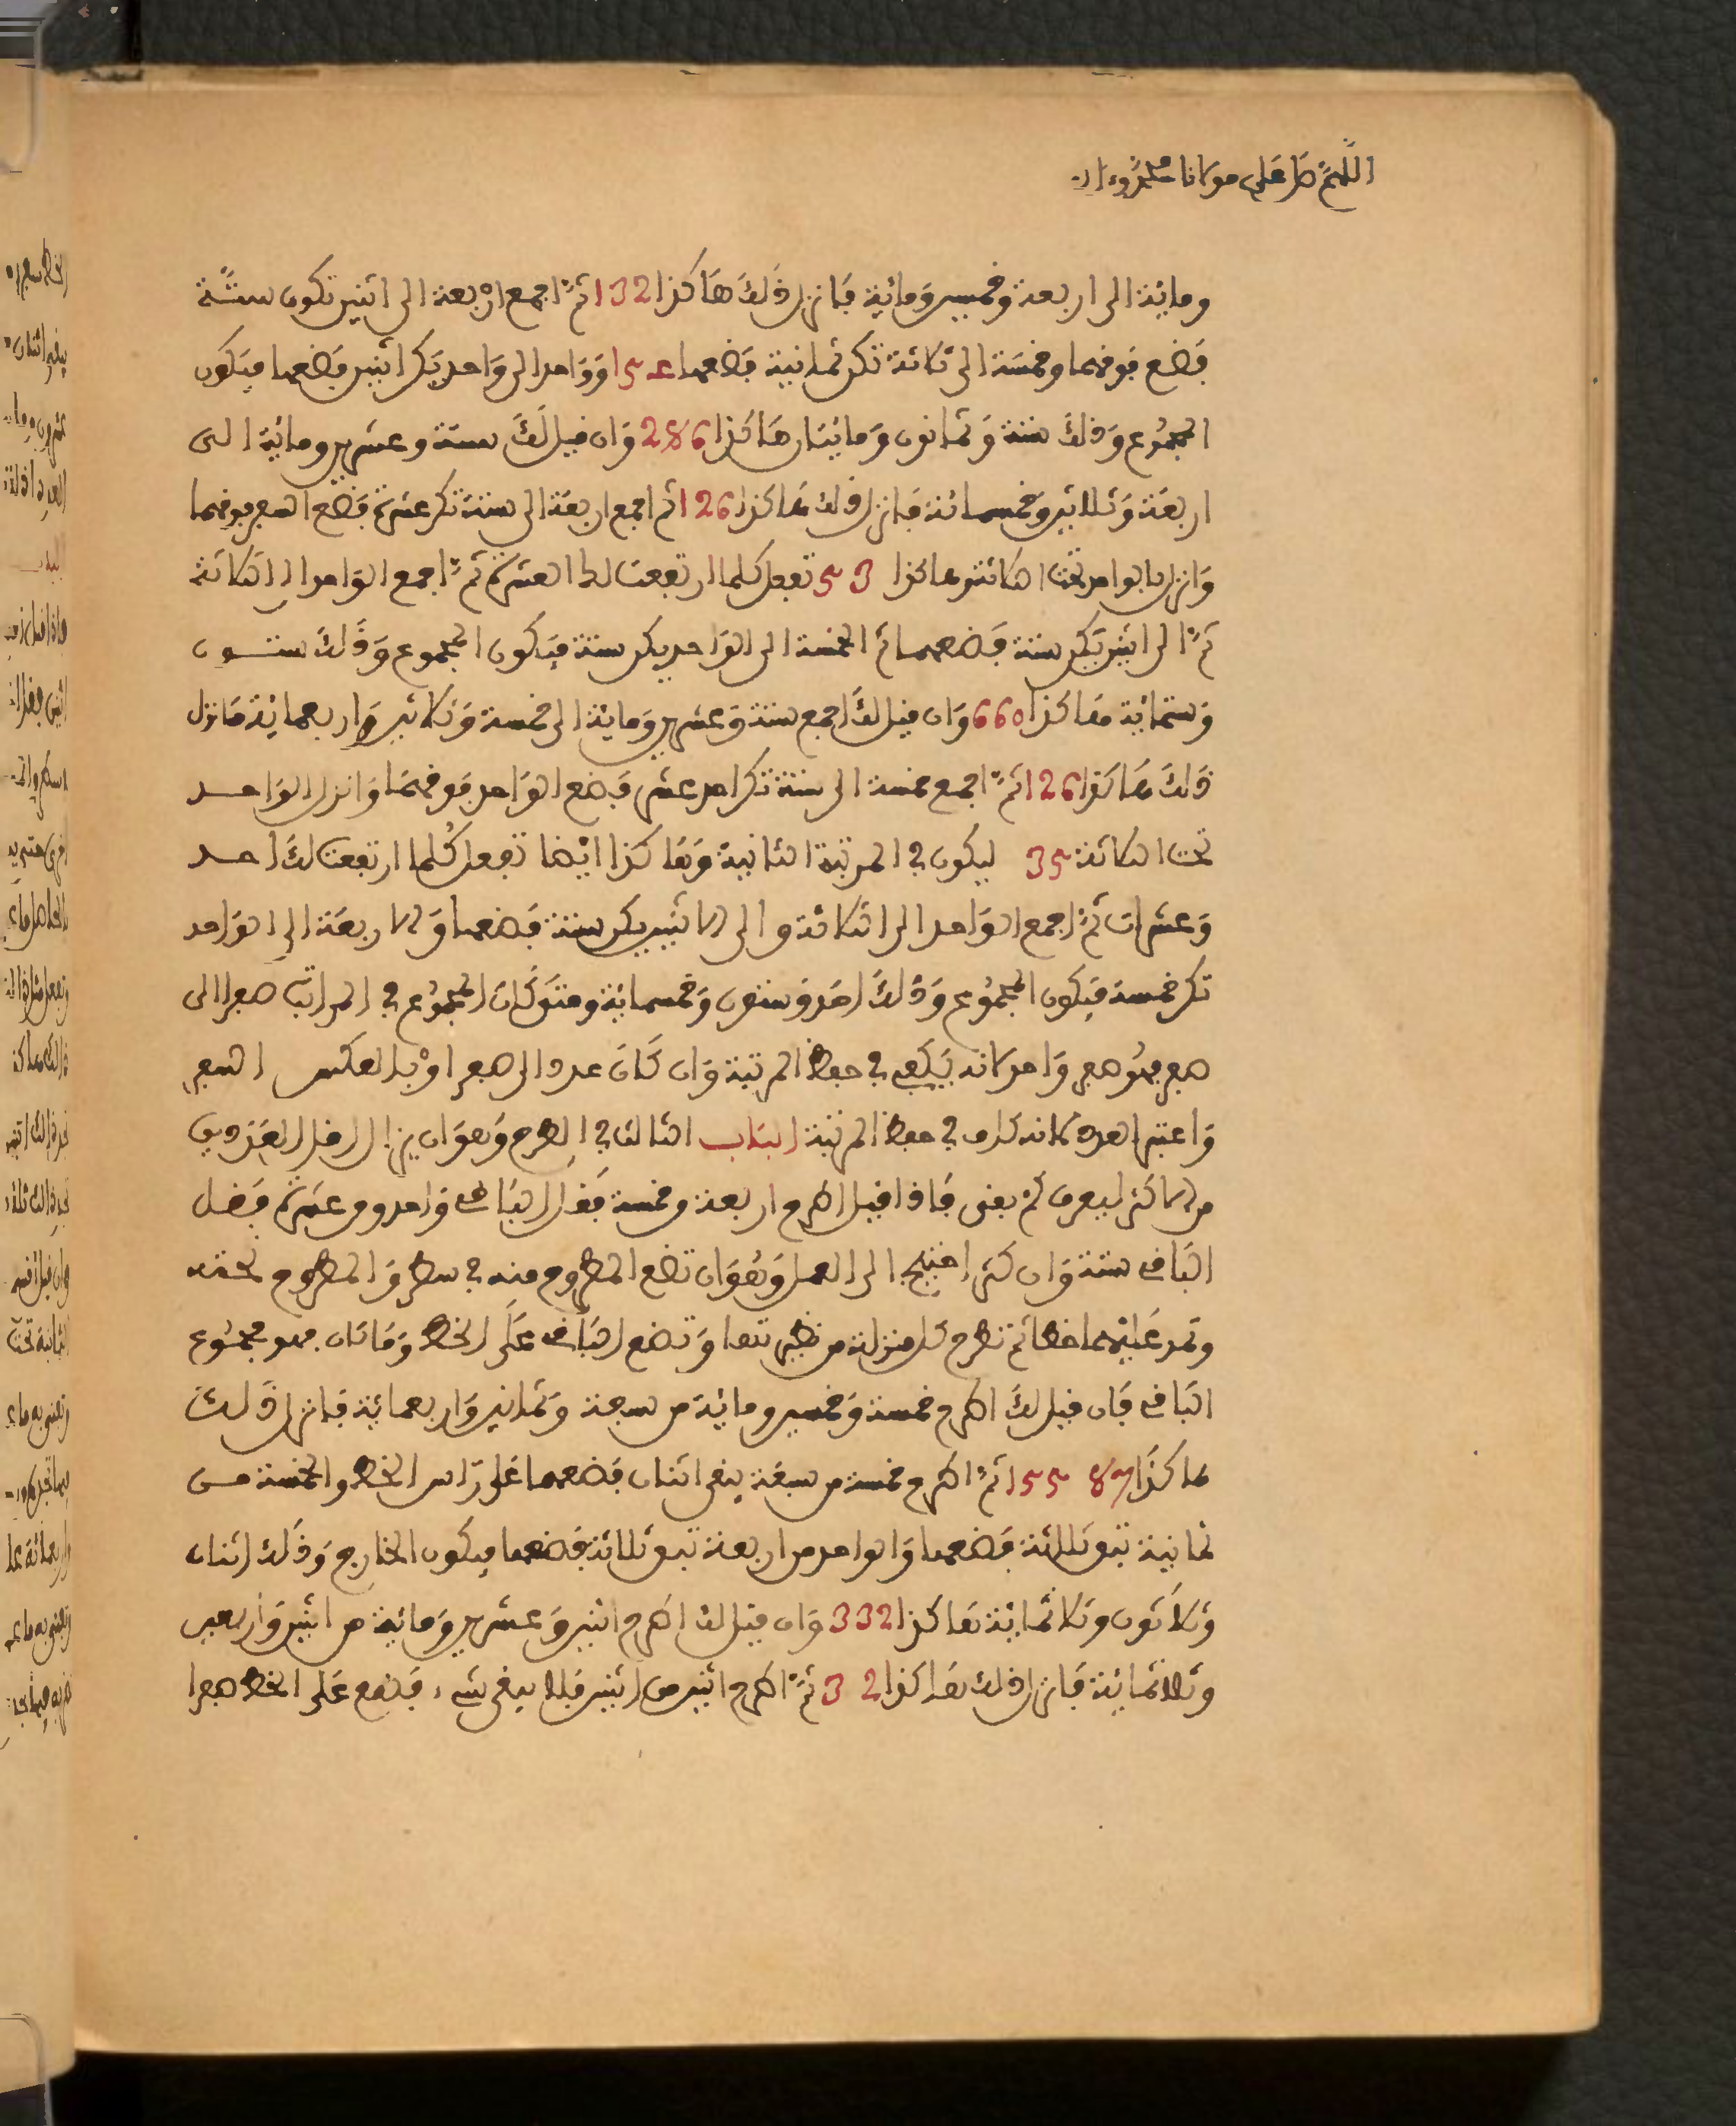 اللهم صل على مولانا محمد وءاله
ومائية الى اربعة وخمسين ومائية فانزل ذلك هاكذا 132 ثم اجمع اربعة الى اثنين تكون ستة
فضع فوفهما وخمسة الى ثلاثة تكن ثمانية فضعهما 154 وواحدا الى واحد يكن اثنين فضعهما فيكون
المجموع وذلك ستة وثمانون ومائيتان هاكذا 286 وان فيل لك ستة وعشرين ومائية الى
اربعة وثلاثين وخمسمائة فانزل ذلك هاكذا 126 ثم اجمع اربعة الى ستة تكن عشرة فضع الصفر فوفهما
وانزل بالواحد تحت الثلاثة هاكذا 53 تفعل كلما ارتفعت لك العشرة ثم اجمع الواحد الى الثلاثة
ثم الى اثنين يكن ستة فضعهما ثم الخمسة الى الواحد يكن ستة فيكون المجموع وذلك ستون
وستمائية هاكذا 660 وان فيل لك اجمع ستة وعشرين ومائية الى خمسة وثلاثين واربعمائية فانزل
ذلك هاكذا 126 ثم اجمع خمسة الى ستة تكن احد عشر فضع الواحد فوفهما وانزل الواحد
تحت الثلاثة 35 ليكون في المرتبة الثانية وهاكذا ايضا تفعل كلما ارتفعت لك احد
وعشرات ثم اجمع الواحد الى الثلاثة والى الاثنين يكن ستة فضعها والاربعة الى الواحد
تكن خمسة فيكون المجموع وذلك احد وستون وخمسمائية ومتى كان المجموع في المراتب صفرا الى
صفر فهو صفر واحد لانه يكفي في حفظ المرتبة وان كان عددا الى صفر او بالعكس الصفر
واعتبر العدد لانه كاف في حفظ المرتبة الباب الثالث في الطرح وهو ان يزال الافل العددين
من الاكثر ليعرف كم بفى فاذا فيل اطرح اربعة وخمسة فقل الباقي واحد ومن عشرة فضل
الباقي ستة وان كثر احتيج الى العمل وهو ان تضع المطروح منه في سطر والمطروح تحته
وتمد عليهما خطا ثم تطرح كل منزلة من نظيرتها وتضع الباقي على الخط وما كان فهو مجموع
الباقي فان فيل لك اطرح خمسة وخمسين ومائية من سبعة وثمانين واربعمائية فانزل ذلك
هاكذا 87 155 ثم اطرح خمسة من سبعة يبفى اثنان فضعهما على راس الخط والخمسة من
ثمانية تبق ثلاثة فضعها والواحد من اربعة تبق ثلاثة فضعها فيكون الخارج وذلك اثنان
وثلاثون وثلاثمائية هاكذا 332 وان فيل لك اطرح اثنين وعشرين ومائية من اثنين واربعين
وثلاثمائية فانزل ذلك هاكذا 32 ثم اطرح اثنين من اثنين فلا يبفى شيء فضع على الخط صفرا